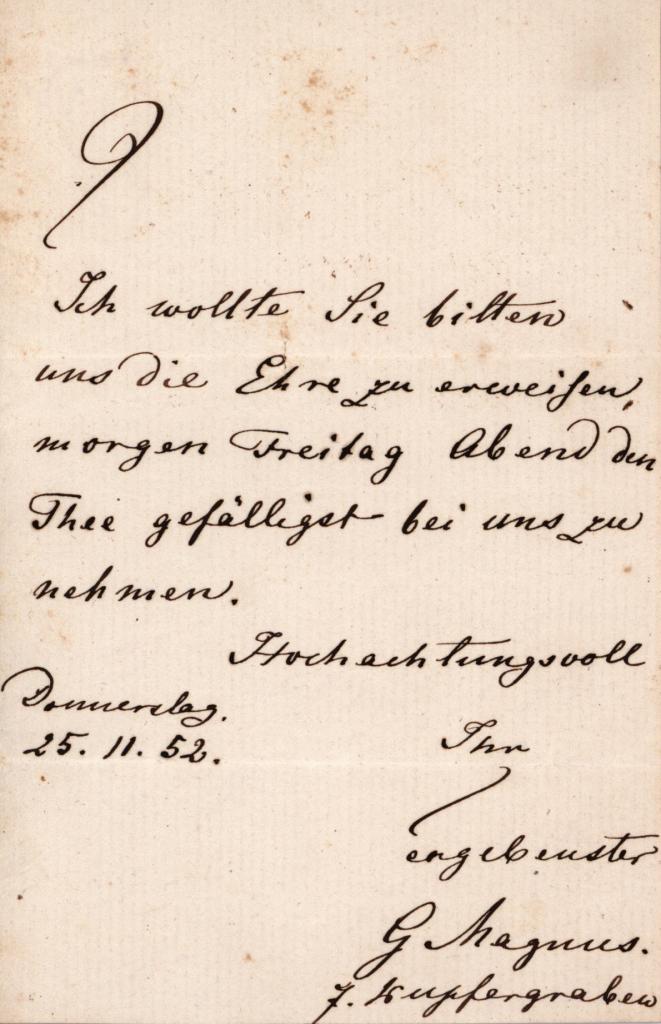 Ich wollte Sie bitten
uns die Ehre zu erweisen,
morgen Freitag Abend den
Thee gefälligst bei uns zu
nehmen.
Hochachtungsvoll
Donnerstag.
25. 11. 52.
Ihr
ergebenster
G Magnus.
7. Kupfergraben